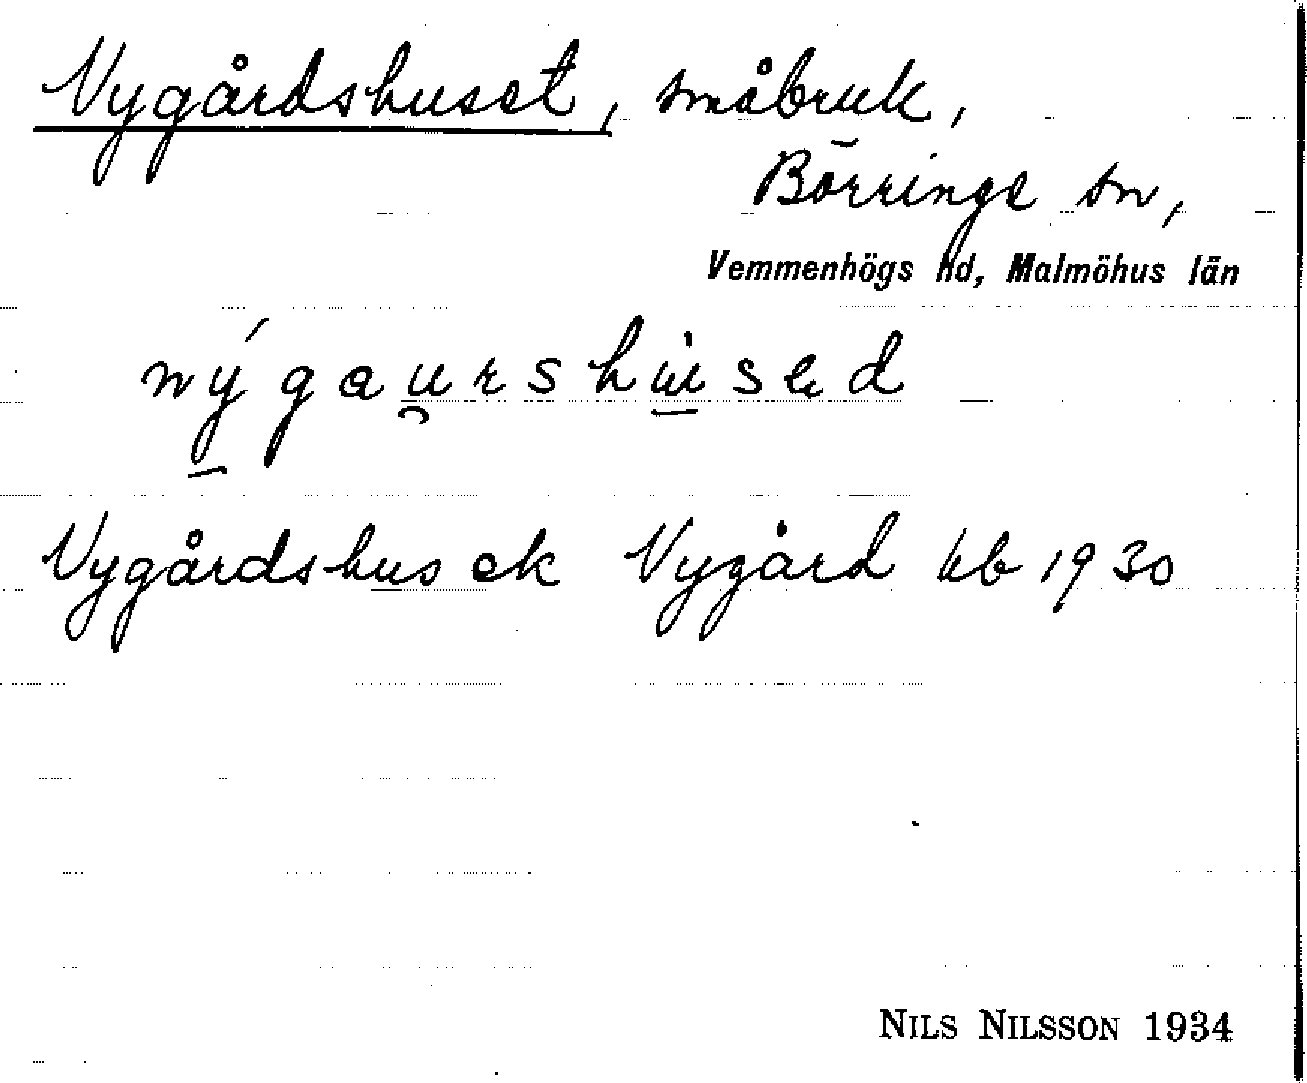 Nygårdshuset, småbruk,
Börringe sn,
Vemmenhögs hd, Malmöhus län
nýgau̯rshu̇sed
Nygårdshus ek Nygård kb 1930
NILS NILSSON 1934